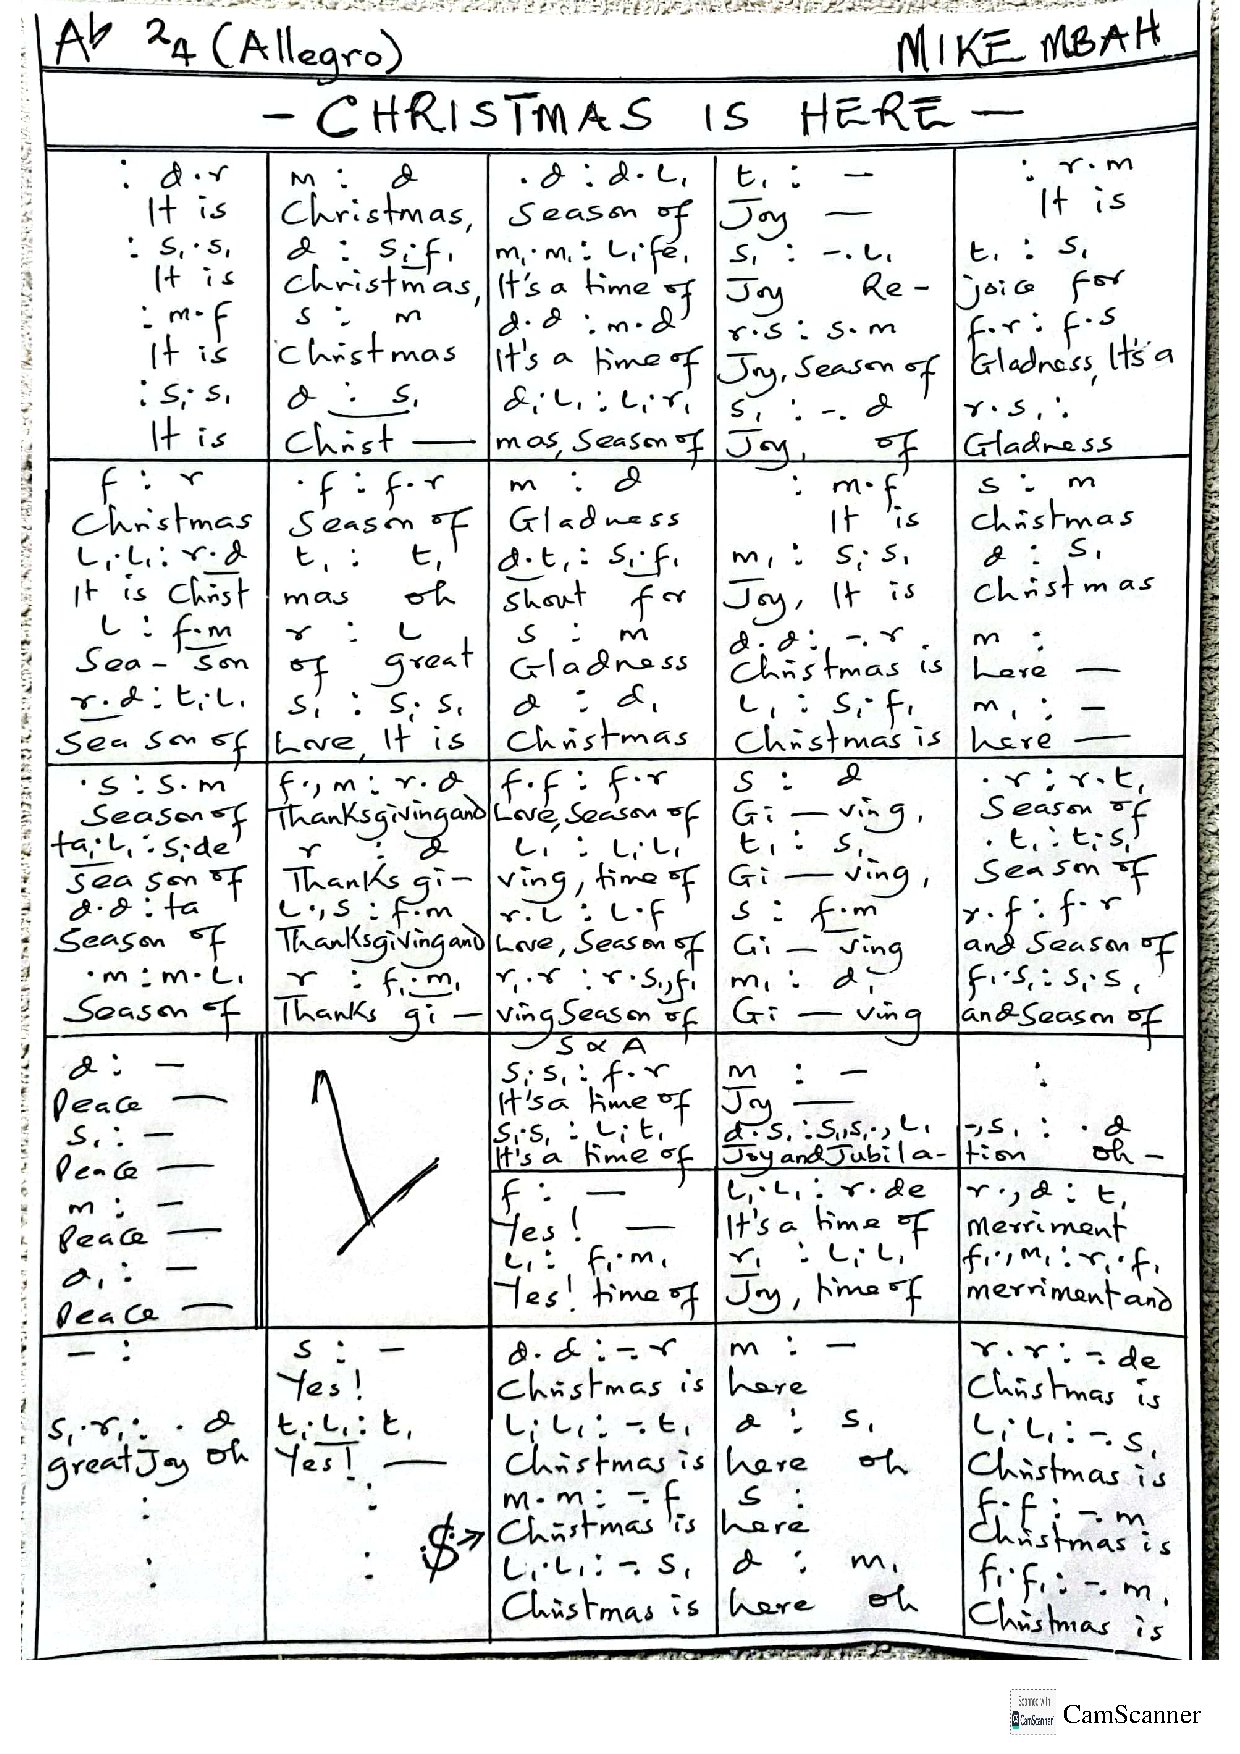 Ab 2 4 (Allegro) MIKE MBAH
- CHRISTMAS IS HERE -
: d.r m : d .d : d.l, t, : - : r.m
It is Christmas, Season of Joy — It is
: s,.s, d : s,.f, m,.m, : l,.fe, s, : -.l, t, : s,
It is Christmas, It's a time of Joy Re- joice for
: m.f s : m d.d : m.d r.s : s.m f.r : f.s
It is Christmas It's a time of Joy, Season of Gladness, It's a
: s,.s, d : s, d,.l, : l,.r, s, : -.d r.s, :
It is Christ — mas, Season of Joy, of Gladness
f : r .f : f.r m : d : m.f s : m
Christmas Season of Gladness It is Christmas
l,.l, : r.d t, : t, d.t, : s,.f, m, : s,.s, d : s,
It is Christ mas oh shout for Joy, It is Christmas
l : f.m r : l s : m d.d : -.r m :
Sea - son of great Gladness Christmas is here —
r.d : t,.l, s, : s,.s, d : d, l, : s,.f, m, : -
Sea son of Love, It is Christmas Christmas is here —
.s : s.m f.,m : r.d f.f : f.r s : d .r : r.t,
Season of Thanksgiving and Love, Season of Gi — ving, Season of
ta,.l, : s,.de r : d l, : l,.l, t, : s, .t, : t,.s,
Sea son of Thanks gi - ving, time of Gi — ving, Season of
d.d : ta l.,s : f.m r.l : l.f s : f.m r.f : f.r
Season of Thanksgiving and Love, Season of Gi - ving and Season of
.m : m.l, r : f,.m, r,.r : r.s,.,f, m, : d, f,.s, : s,.s,
Season of Thanks gi — ving Season of Gi — ving and Season of
S & A
d : - s,.s, : f.r m : - :
Peace — It's a time of Joy —
s, : - s,.s, : l,.t, d.s, : s,.s,.,l, -.,s, : .d
Peace — It's a time of Joy and Jubila- tion oh -
m : - f : — l,.l, : r.de r.,d : t,
Peace — Yes! — It's a time of merriment
d, : - l, : f,.m, r, : l,.l, f,.,m, : r,.f,
Peace — Yes! time of Joy, time of merriment and
- : s : - d.d : -.r m : - r.r : -.de
Yes! Christmas is here Christmas is
s,.r, : .d t,.l, : t, l,.l, : -.t, d : s, l,.l, : -.s,
great Joy oh Yes! — Christmas is here oh Christmas is
: : m.m : -.f s : f.f : -.m
Christmas is here Christmas is
: : l,.l, : -.s, d : m, f,.f, : -.m,
Christmas is here oh Christmas is
Scanned with
CamScanner
CamScanner